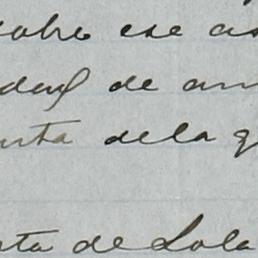 sobre ese as
de am
nta dela q
ta de Lola